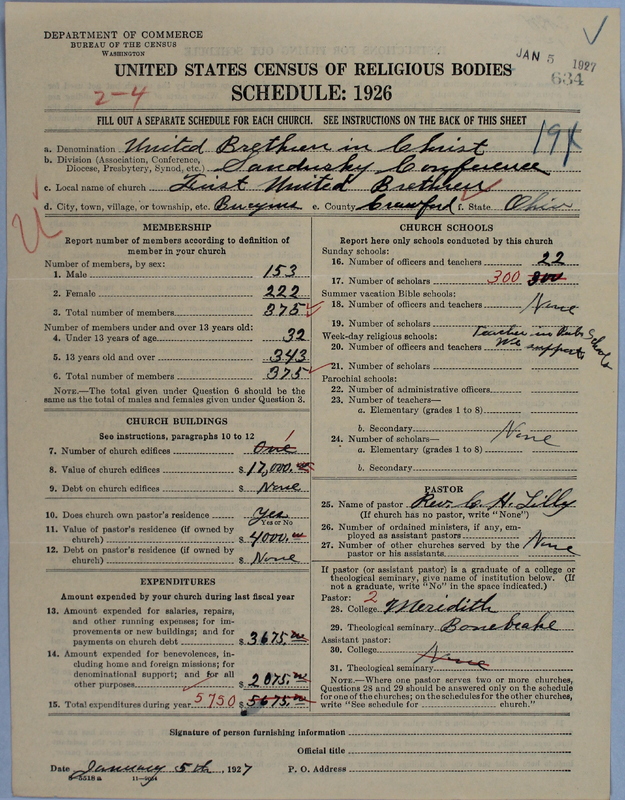 DEPARTMENT OF COMMERCE
BUREAU OF THE CENSUS
WASHINGTON
JAN 5 1927
634
UNITED STATES CENSUS OF RELIGIOUS BODIES
SCHEDULE: 1926
2-4
FILL OUT A SEPARATE SCHEDULE FOR EACH CHURCH. SEE INSTRUCTIONS ON THE BACK OF THIS SHEET
a. Denomination United Brethren in Christ
b. Division (Association, Conference, Diocese, Presbytery, Synod, etc.) Sandusky Conference
c. Local name of church First United Brethren
d. City, town, village, or township, etc. Bucyrus e. County Crawford f. State Ohio
MEMBERSHIP
Report number of members according to definition of
member in your church
Number of members, by sex:
1. Male 153
2. Female 222
3. Total number of members 375
Number of members under and over 13 years old:
4. Under 13 years of age 32
5. 13 years old and over 343
6. Total number of members 375
NOTE.—The total given under Question 6 should be
same as the total of males and females given under Question 3.
CHURCH BUILDINGS
See instructions, paragraphs 10 to 12
7. Number of church edifices One 1
8. Value of church edifices $ 17,000.00
9. Debt on church edifices $ None
10. Does church own pastor's residence Yes
Yes or No
11. Value of pastor's residence (if owned by
church) $ 4000.00
12. Debt on pastor's residence (if owned by
church) $ None
EXPENDITURES
Amount expended by your church during last fiscal year
13. Amount expended for salaries, repairs,
and other running expenses; for im-
provements or new buildings; and for
payments on church debt $ 3675.00
14. Amount expended for benevolences, in-
cluding home and foreign missions; for
denominational support; and for all
other purposes $ 2075.00
15. Total expenditures during year 5750 $ 5675.00
CHURCH SCHOOLS
Report here only schools conducted by this church
Sunday schools:
16. Number of officers and teachers 22
17. Number of scholars 300 300
Summer vacation Bible schools:
18. Number of officers and teachers None
19. Number of scholars
Week-day religious schools: Teacher in Pub. Schools
20. Number of officers and teachers We support
21. Number of scholars
Parochial schools:
22. Number of administrative officers
23. Number of teachers—
a. Elementary (grades 1 to 8)
b. Secondary None
24. Number of scholars—
a. Elementary (grades 1 to 8)
b. Secondary
PASTOR
25. Name of pastor Rev. C. H. Lilly
(If church has no pastor, write "None")
26. Number of ordained ministers, if any, em-
ployed as assistant pastors
27. Number of other churches served by the None
pastor or his assistants
If pastor (or assistant pastor) is a graduate of a college or
theological seminary, give name of institution below. (If
not a graduate, write "No" in the space indicated.)
Pastor: 2
28. College Meridith
29. Theological seminary Bonebrake
Assistant pastor:
30. College
None
31. Theological seminary
NOTE.—Where one pastor serves two or more churches,
Questions 28 and 29 should be answered only on the schedule
for one of the churches; on the schedules for the other churches,
write "See schedule for church."
Signature of person furnishing information
Official title
Date January 5th, 1927 P. O. Address
8-5518 a